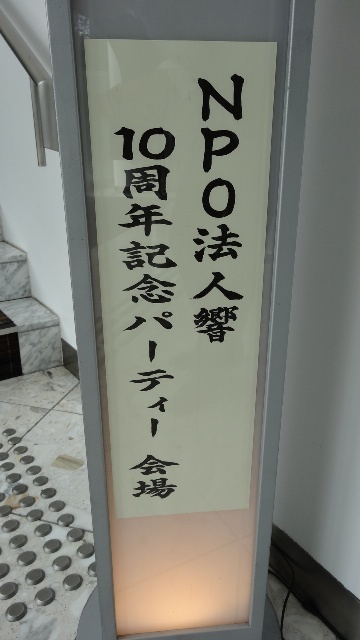 NPO法人響
10周年記念パーティー 会場